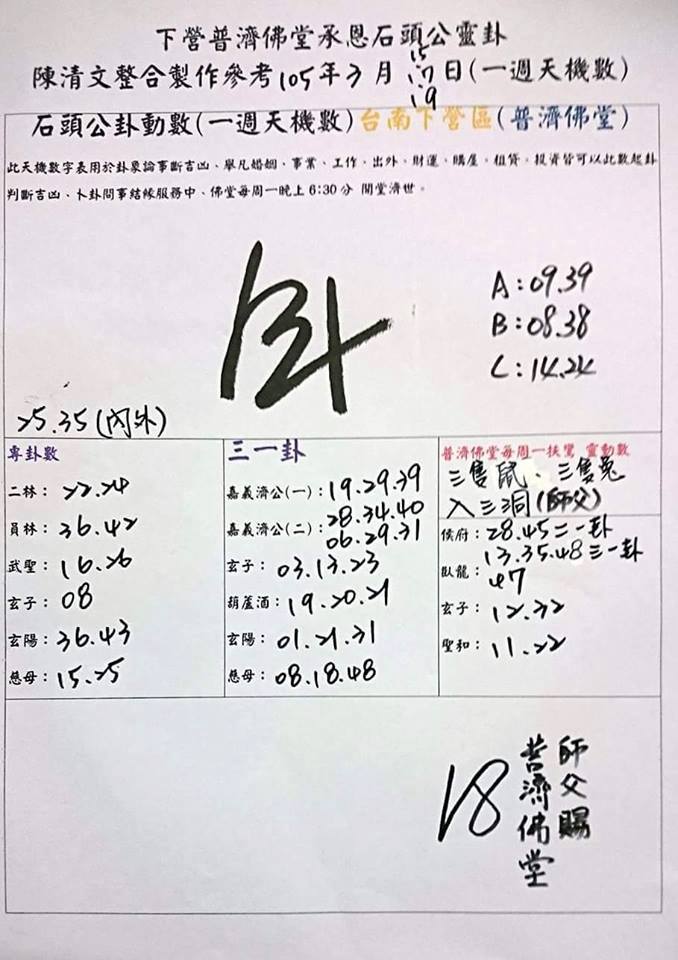 下營普濟佛堂承恩石頭公靈卦
陳清文整合製作參考105年3月15.17.19日(一週天機數)
石頭公卦動數(一週天機數)台南下營區(普濟佛堂)
此天機數字表用於卦象論事斷吉凶、舉凡婚姻、事業、工作、出外、財運、購屋、租賃、投資皆可以此數起卦
判斷吉凶、卜卦問事結緣服務中、佛堂每周一晚上6:30分 開堂濟世。
A:09.39
B:08.38
C:14.24
25.35(內外)
專卦數
二林: 22.24
員林: 36.42
武聖: 16.26
玄子: 08
玄陽: 36.43
慈母: 15.25
三一卦
嘉義濟公(一): 19.29.39
嘉義濟公(二): 28.34.40
06.29.31
玄子: 03.13.23
葫蘆酒: 19.20.21
玄陽: 01.21.31
慈母: 08.18.48
普濟佛堂每周一扶鸞 靈動數
三隻鼠、三隻兔
入三洞(師父)
侯府: 28.45二一卦
13.35.48三一卦
臥龍: 47
玄子: 12.32
聖和: 11.22
18
師父賜
普濟佛堂